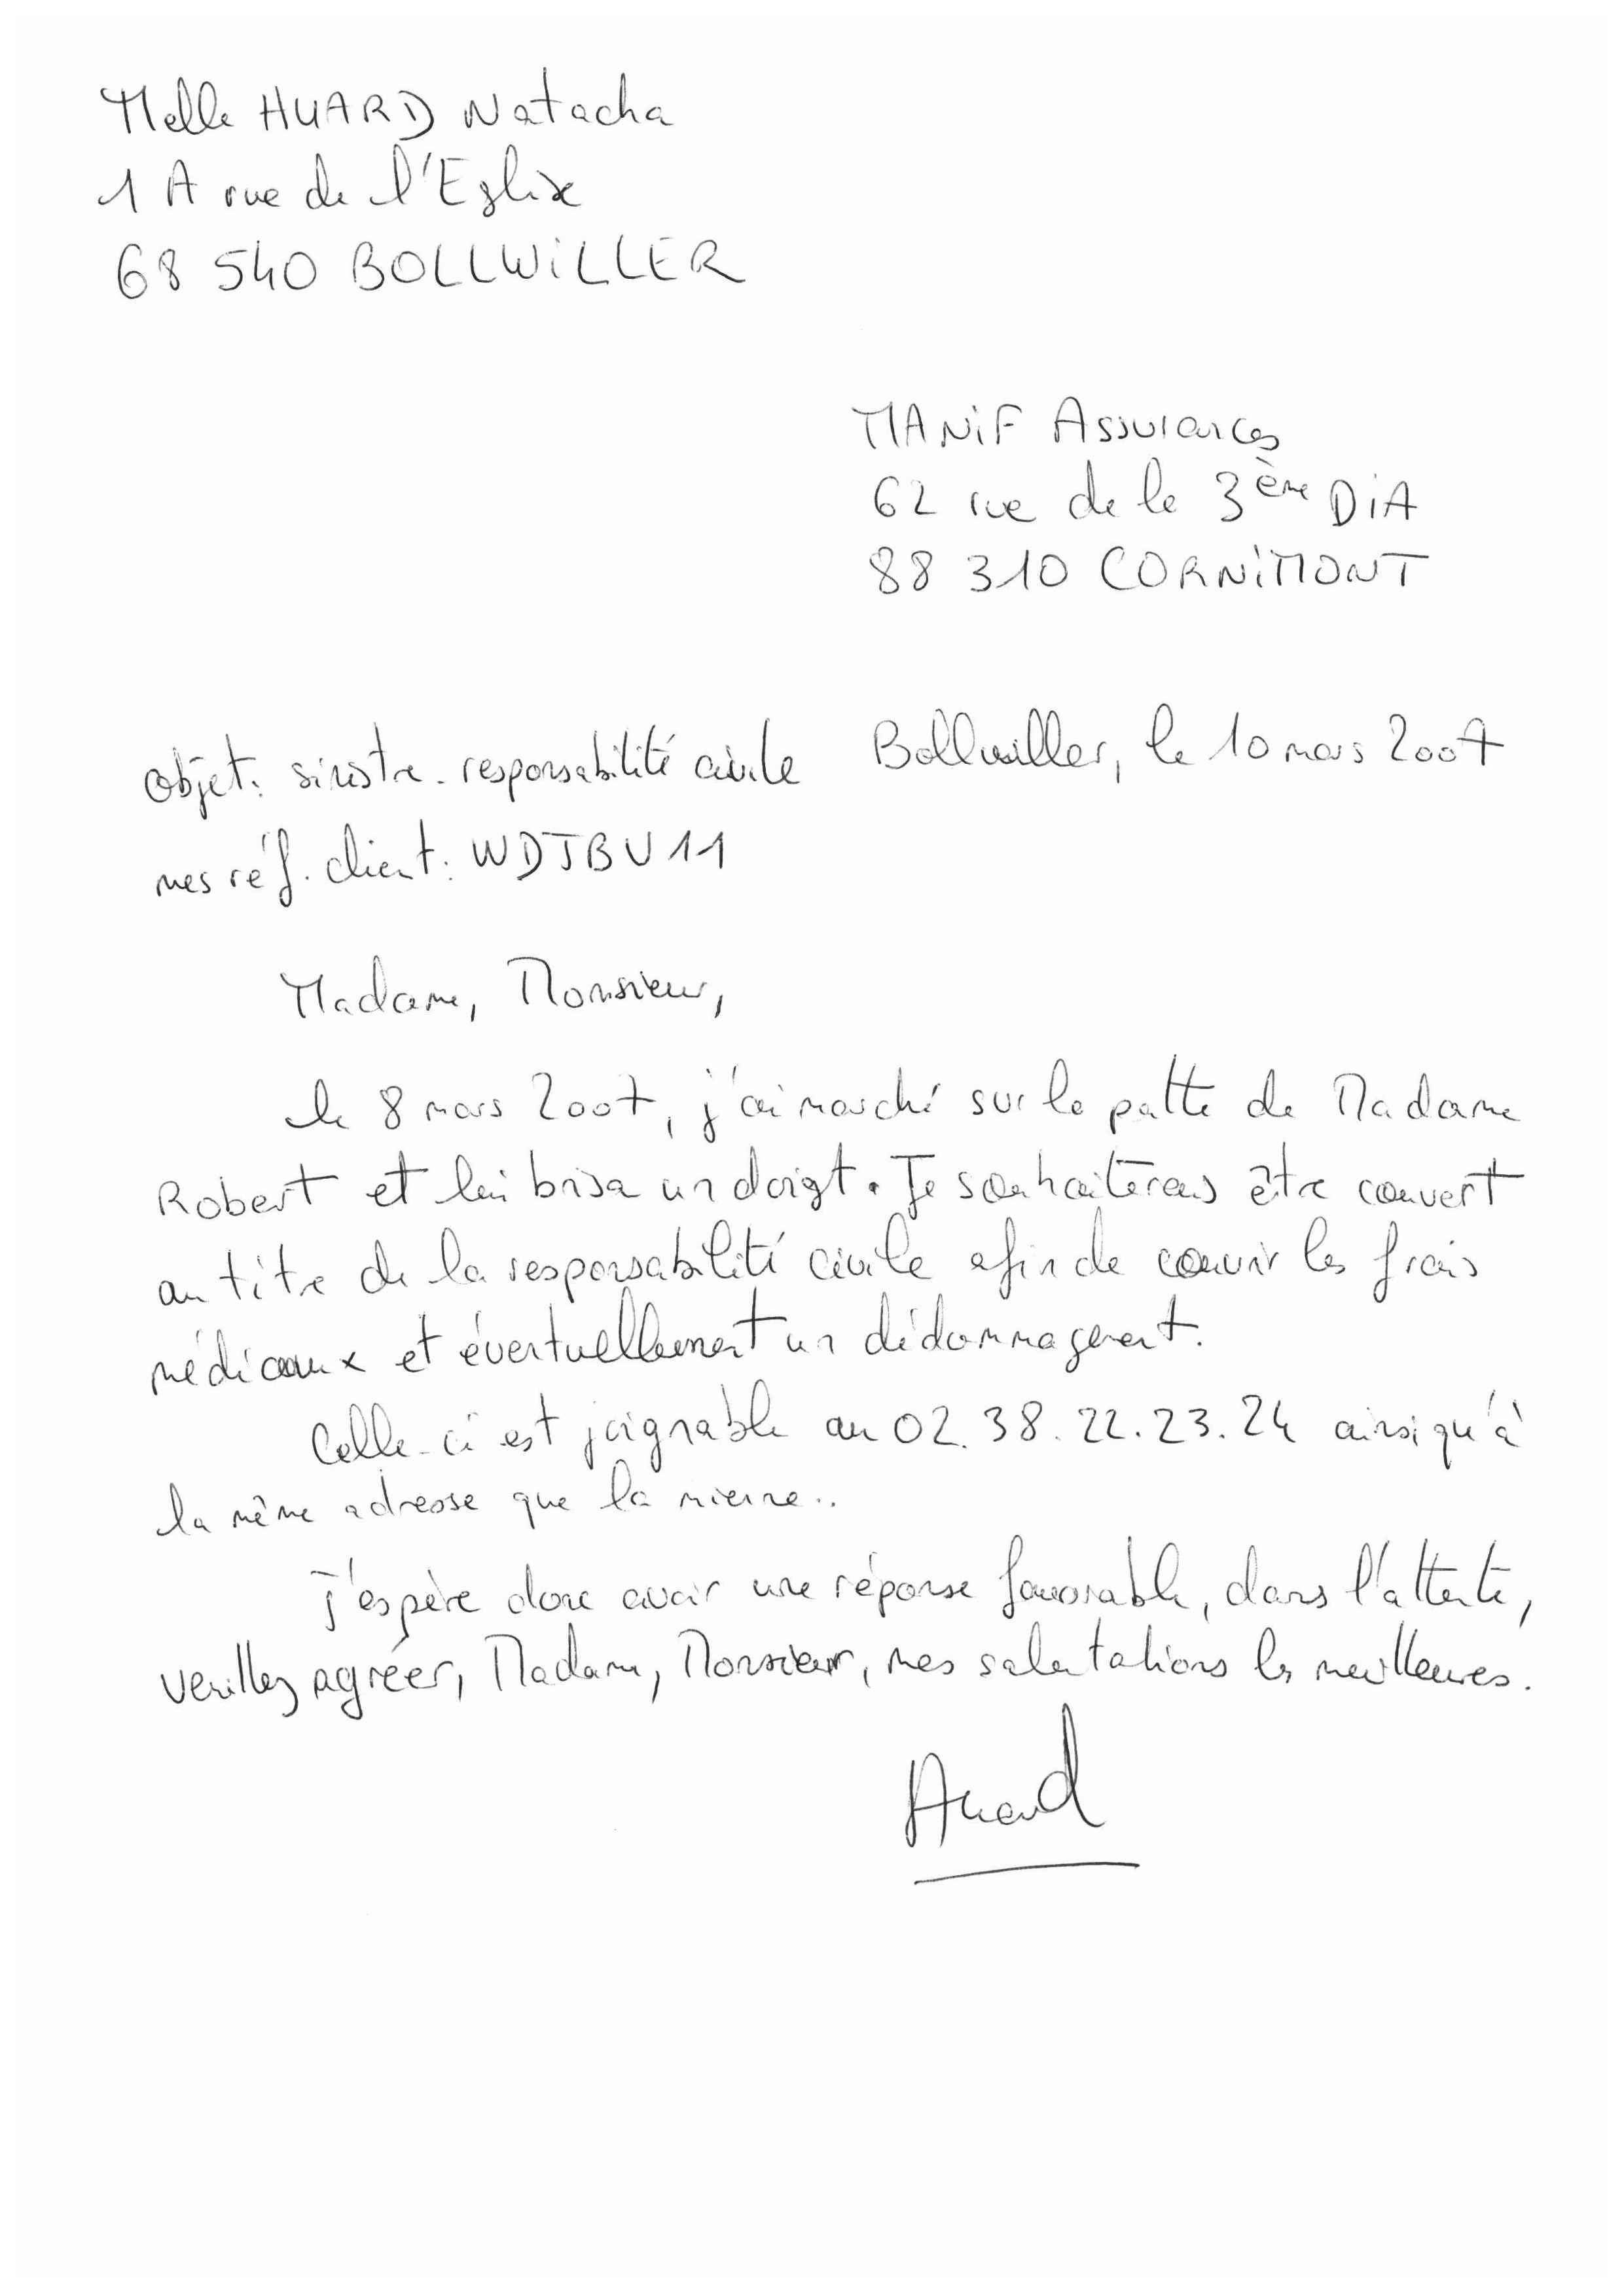 Melle HUARD Natacha
1 A rue de l'Eglise
68 540 BOLLWILLER
MANIF Assurances
62 rue de la 3ème DIA
88 310 CORNIMONT
Bollwiller, le 10 mars 2007
objet: sinistre - responsabilité civile
mes réf. client: WDJBU11
Madame, Monsieur,
le 8 mars 2007, j'ai marché sur la patte de Madame
Robert et lui brisa un doigt. Je souhaiterais être couvert
au titre de la responsabilité civile afin de couvrir les frais
médicaux et éventuellement un dédommagement.
Celle-ci est joignable au 02.38.22.23.24 ainsi qu'à
la même adresse que la mienne..
j'espère donc avoir une réponse favorable, dans l'attente,
veuillez agréer, Madame, Monsieur, mes salutations les meilleures.
Huard